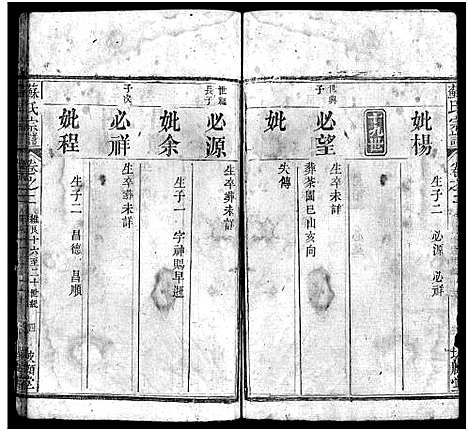 蘇氏宗譜
卷之二
妣楊
生子二 必源 必祥
十九世
世興子
必望
生卒未詳
葬茶園巳山亥向
妣
失傳
世福長子
必源
生卒葬未詳
妣余
生子一 字神賜早逝
次子
必祥
生卒葬未詳
妣程
生子二 昌德 昌順
蘇氏宗譜
卷之二
十六至二十世紀
四